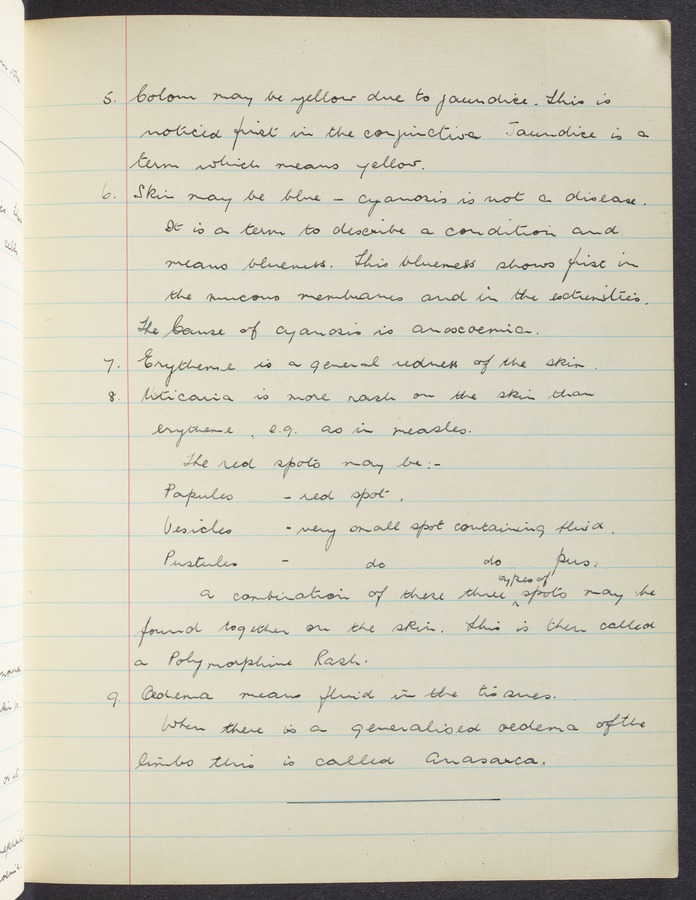 5. Colour may be yellow due to jaundice. This is
noticed first in the conjinctiva Jaundice is a
term which means yellow.
6. Skin may be blue – cyanosis is not a disease.
It is a term to describe a condition and
means blueness. This blueness shows first in
the mucous membranes and in the extremities.
The Cause of cyanosis is anoxoemia.
7. Erytheme is a general redness of the skin.
8. Uticaria is more rash on the skin than
erytheme, e.g. as in measles.
The red spots may be:-
Papules - red spot.
Vesicles - very small spot containing fluid.
Pustules - do do pus.
types of
a combination of these three spots may be
found together on the skin. This is then called
a Polymorphine Rash.
9. Oedema means fluid in the tissues.
When there is a generalised oedema of the
limbs this is called Anasarca.